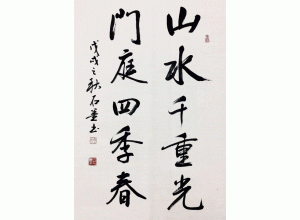 山水千重光
門庭四季春
戊戌之秋石荃书